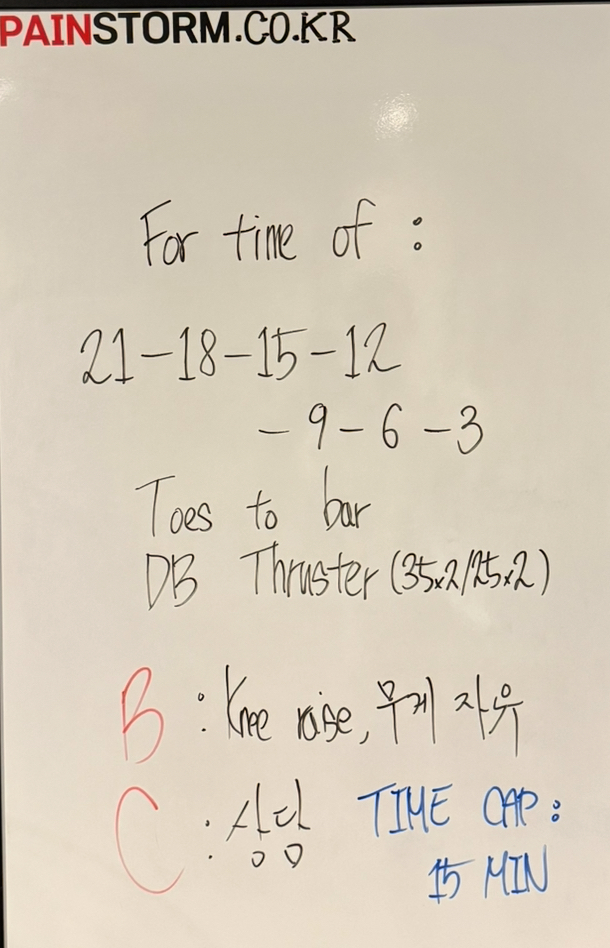 PAINSTORM.CO.KR
For time of :
21-18-15-12
-9-6-3
Toes to bar
DB Thruster (35x2/25x2)
B : Knee raise, 무게 자유
C : 상당
TIME CAP :
15 MIN